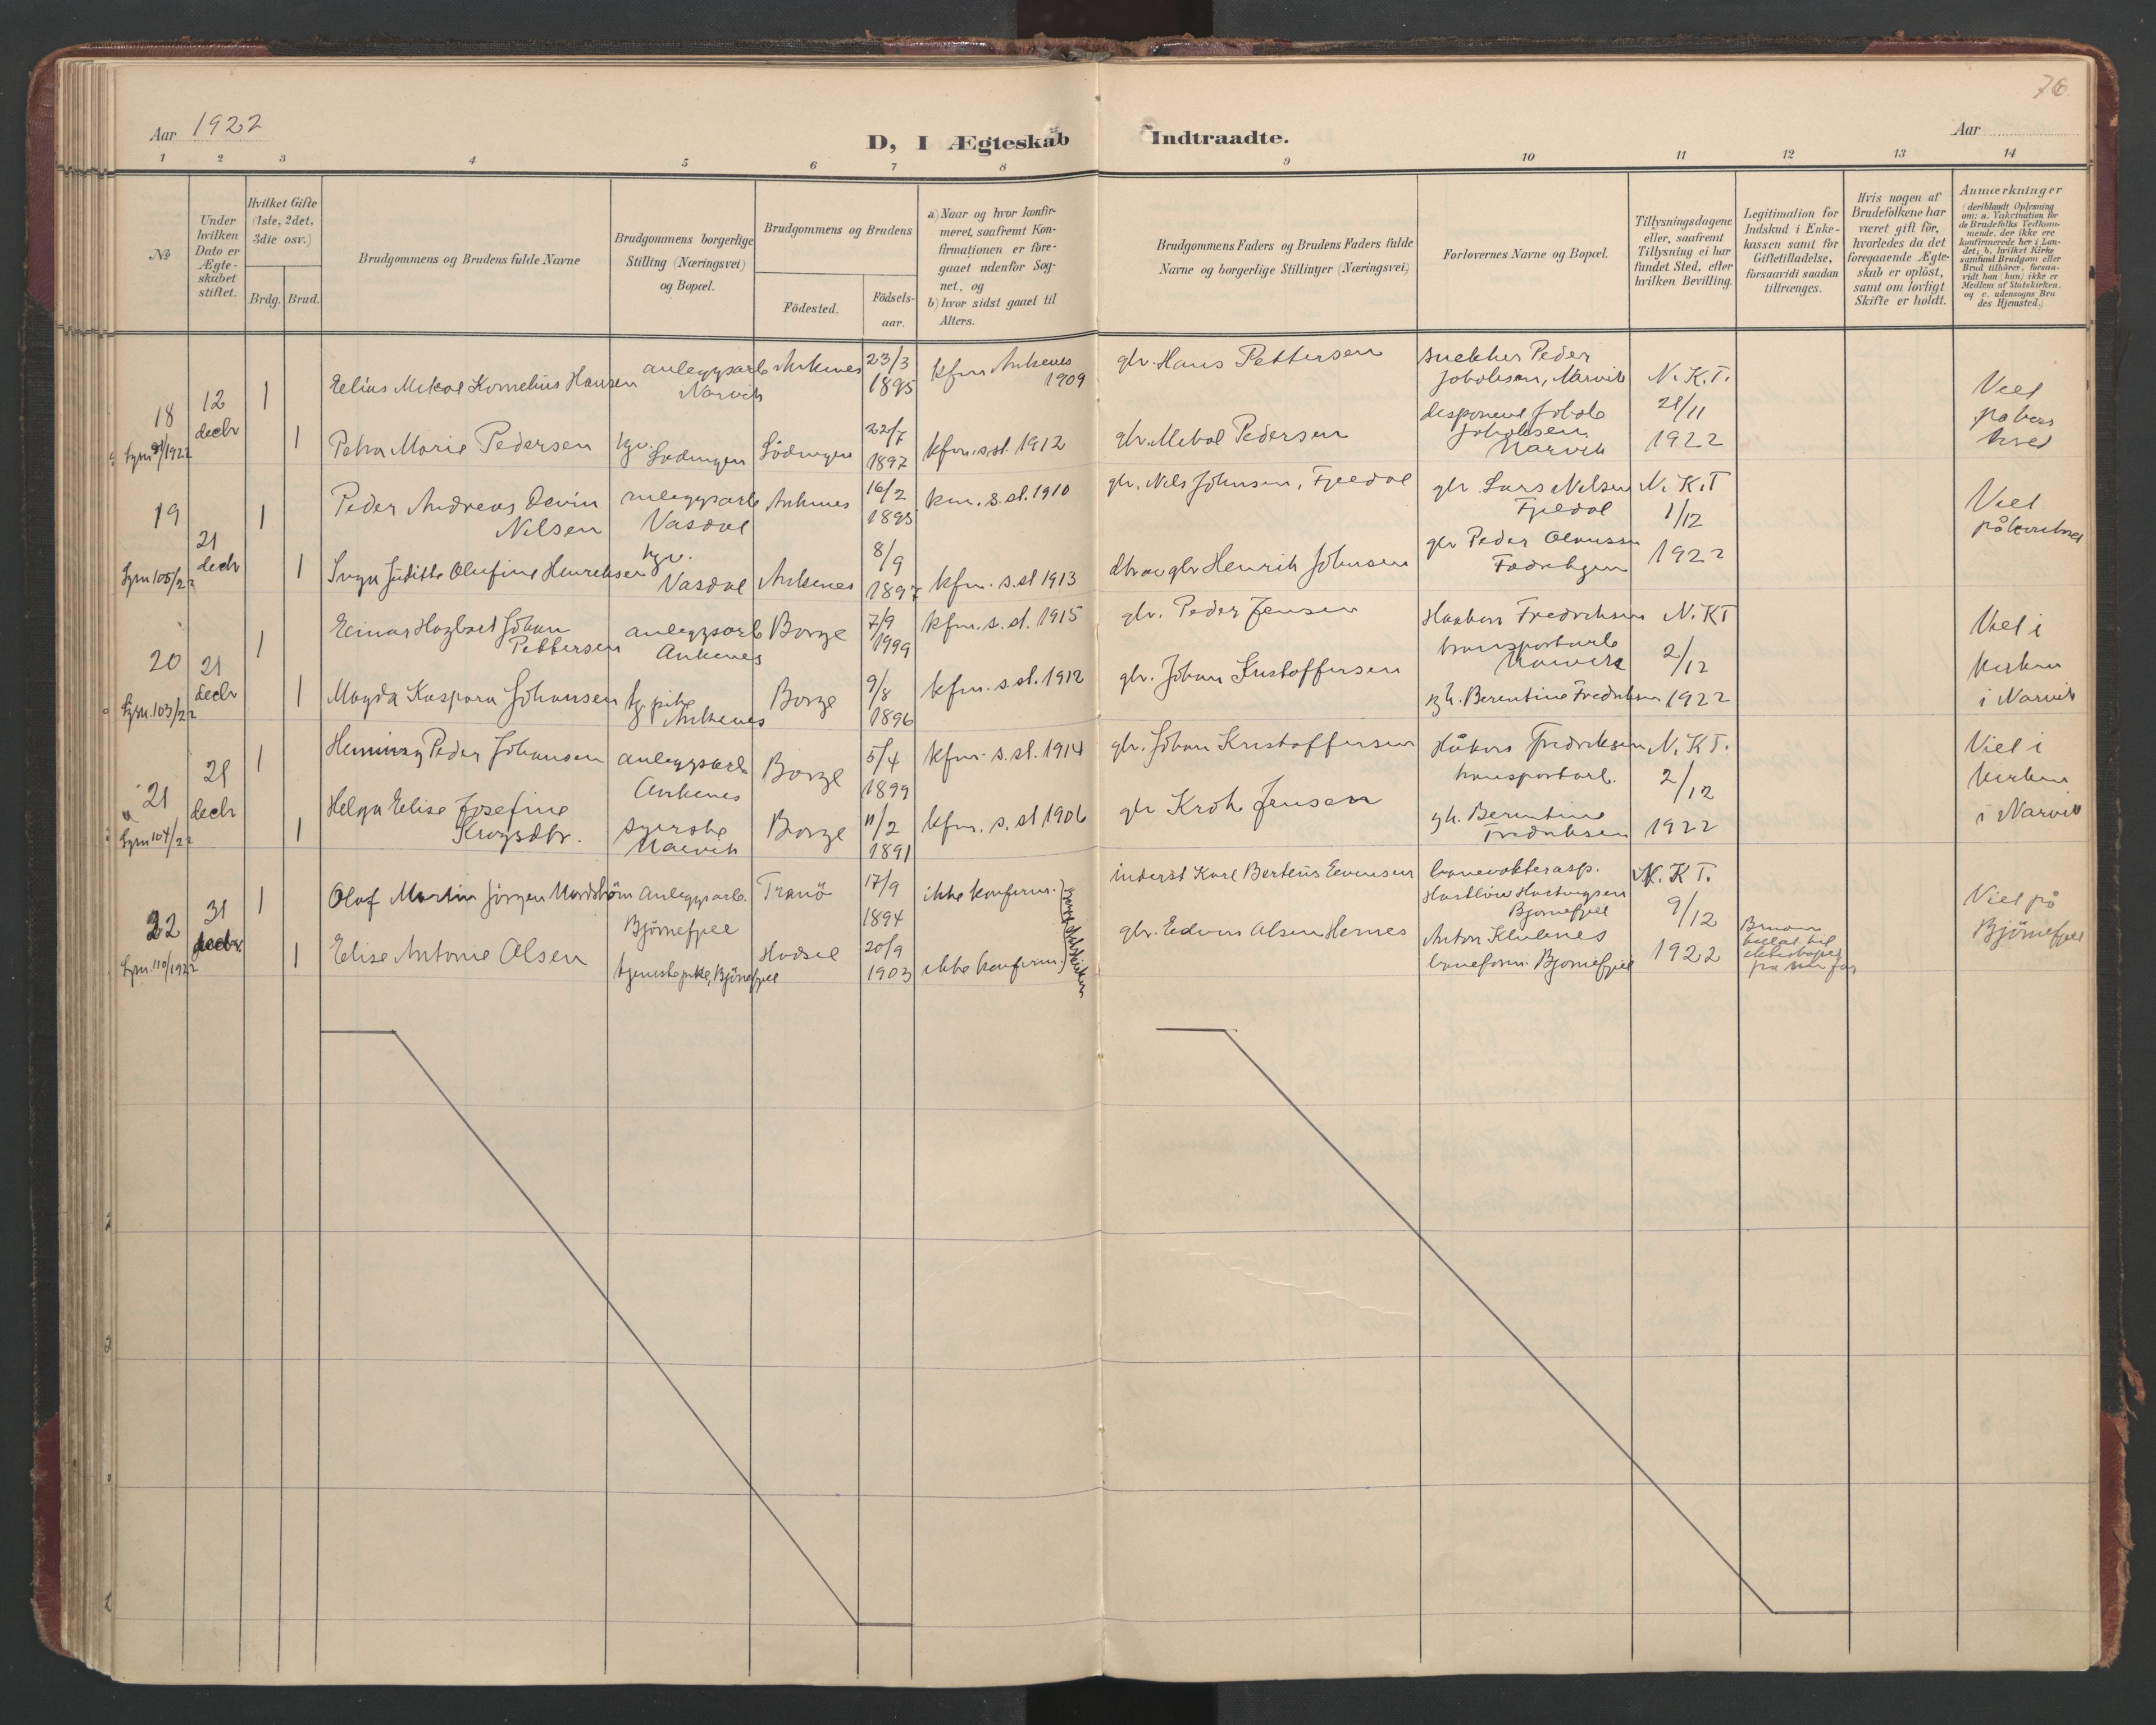 76.
Aar 1922
D, I Ægteskab Indtraadte.
Aar
1 2 3 4 5 6 7 8 9 10 11 12 13 14
No
Under hvilken Dato er Ægteskabet stiftet.
Hvilket Gifte (1ste, 2det, 3die osv.)
Brdg. Brud.
Brudgommens og Brudens fulde Navne
Brudgommens borgerlige Stilling (Næringsvei) og Bopæl.
Brudgommens og Brudens
Födested.
Födsels-aar.
a) Naar og hvor konfirmeret, saafremt Konfirmationen er foregaaet udenfor Sognet, og
b) hvor sidst gaaet til Alters.
Brudgommens Faders og Brudens Faders fulde Navne og borgerlige Stillinger (Næringsvei)
Forlovernes Navne og Bopæl.
Tillysningsdagene eller, saafremt Tillysning ei har fundet Sted, efter hvilken Bevilling.
Legitimation for Indskud i Enkekassen samt for Giftetilladelse, forsaavidt saadan tiltrænges.
Hvis nogen af Brudefolkene har været gift för, hvorledes da det foregaaende Ægteskab er oplöst, samt om lovligt Skifte er holdt.
Anmærkninger (deriblandt Oplysning om: a. Vakcination for de Brudefolks Vedkommende, der ikke ere konfirmerede her i Landet; b. hvilket Kirkesamfund Brudgom eller Brud tilhörer, forsaavidt han (hun) ikke er Medlem af Statskirken. og c. udensogns Brudes Hjemsted.)
18 12 decbr 1 Eelias Mikal Kornelius Hansen anleggsarb Narvik Ankenes 23/3 1895 kfm Ankenes 1909 gbr. Hans Pettersen snekker Peder Jakobsen, Narvik N.K.T. 21/11 1922 Viet
1 Petra Marie Pedersen Lödingen Lödingen 22/7 1897 kfm. s. st. 1912 gbr. Mikal Pedersen disponent Jakob Jakobsen, Narvik
19 21 decbr 1 Peder Andreas Devin Nilsen anleggsarb Vasdal Ankenes 16/2 1895 km. s. st. 1910 gbr. Nils Johnsen, Fjeldal gbr Lars Nilsen Fjeldal N.K.T 1/12 1922 Viet på kontoret
Lysn 105/22 1 Inga Juditte Olufine Henriksen Vasdal Ankenes 8/9 1897 kfm. s. st 1913 dtr av gbr Henrik Johnsen gbr Peder
20 21 decbr 1 Einar Hagbart Johan Pettersen anleggsarb Ankenes Borge 7/9 1999 kfm. s. st. 1915 gbr. Peder Jensen Haakon Fredriksen transportarb Narvik N.KT 2/12 1922 Viet i kirken i Narvik
Lysn. 103/22 1 Magda Kaspara Johansen tj. pike Ankenes Borge 9/8 1896 kfm. s. st. 1912 gbr. Johan Kristoffersen gh. Berentine Fredriksen
21 21 decbr 1 Henning Peder Johansen anleggsarb Ankenes Borge 5/4 1899 kfm. s. st. 1914 gbr. Johan Kristoffersen Håkon Fredriksen transportarb. N.K.T. 2/12 1922 Viet i kirken i Narvik
Lysn 104/22 1 Helga Elise Josefine Krogsdtr. syerske Narvik Borge 11/2 1891 kfm. s. st 1906 gbr Kroh Jensen gh. Berentine Fredriksen
22 31 decbr. 1 Olaf Martin Jörgen Nordström Anleggsarb. Björnefjell Tranö 17/9 1894 ikke konfirm. inderst Karl Bertéus Evensen banevokterasp. Björnefjell N.K.T. 9/12 1922 Viet på Björnefjell
Lysn. 110/1922 1 Elise Antonie Olsen tjenestepike, Björnefjell Hadsel 20/9 1903 ikke konfirm. gbr. Edvin Olsen Hernes Anton Klubnes baneform. Bjornefjell